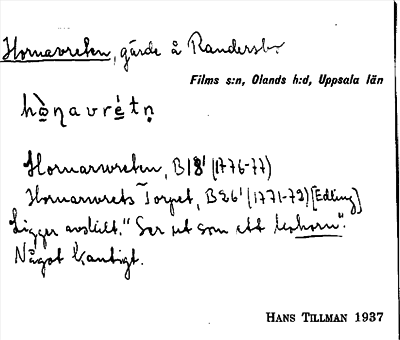 Hornavreten, gärde å Randersbo
Films s:n, Olands h:d, Uppsala län
hò̤ɳavré̤tn̥
Hornarwreten, B18' (1776-77)
Hornarwrets Torpet, B26' (1771-72) [Edling]
Ligger avskilt. "Ser ut som ett kohorn".
Något kantigt.
HANS TILLMAN 1937